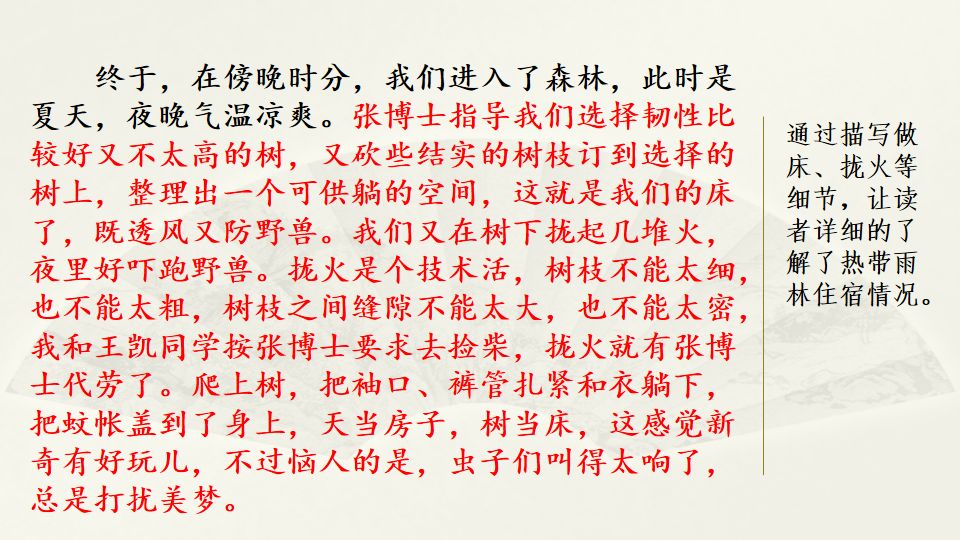 终于，在傍晚时分，我们进入了森林，此时是
夏天，夜晚气温凉爽。张博士指导我们选择韧性比
较好又不太高的树，又砍些结实的树枝订到选择的
树上，整理出一个可供躺的空间，这就是我们的床
了，既透风又防野兽。我们又在树下拢起几堆火，
夜里好吓跑野兽。拢火是个技术活，树枝不能太细，
也不能太粗，树枝之间缝隙不能太大，也不能太密，
我和王凯同学按张博士要求去捡柴，拢火就有张博
士代劳了。爬上树，把袖口、裤管扎紧和衣躺下，
把蚊帐盖到了身上，天当房子，树当床，这感觉新
奇有好玩儿，不过恼人的是，虫子们叫得太响了，
总是打扰美梦。
通过描写做
床、拢火等
细节，让读
者详细的了
解了热带雨
林住宿情况。